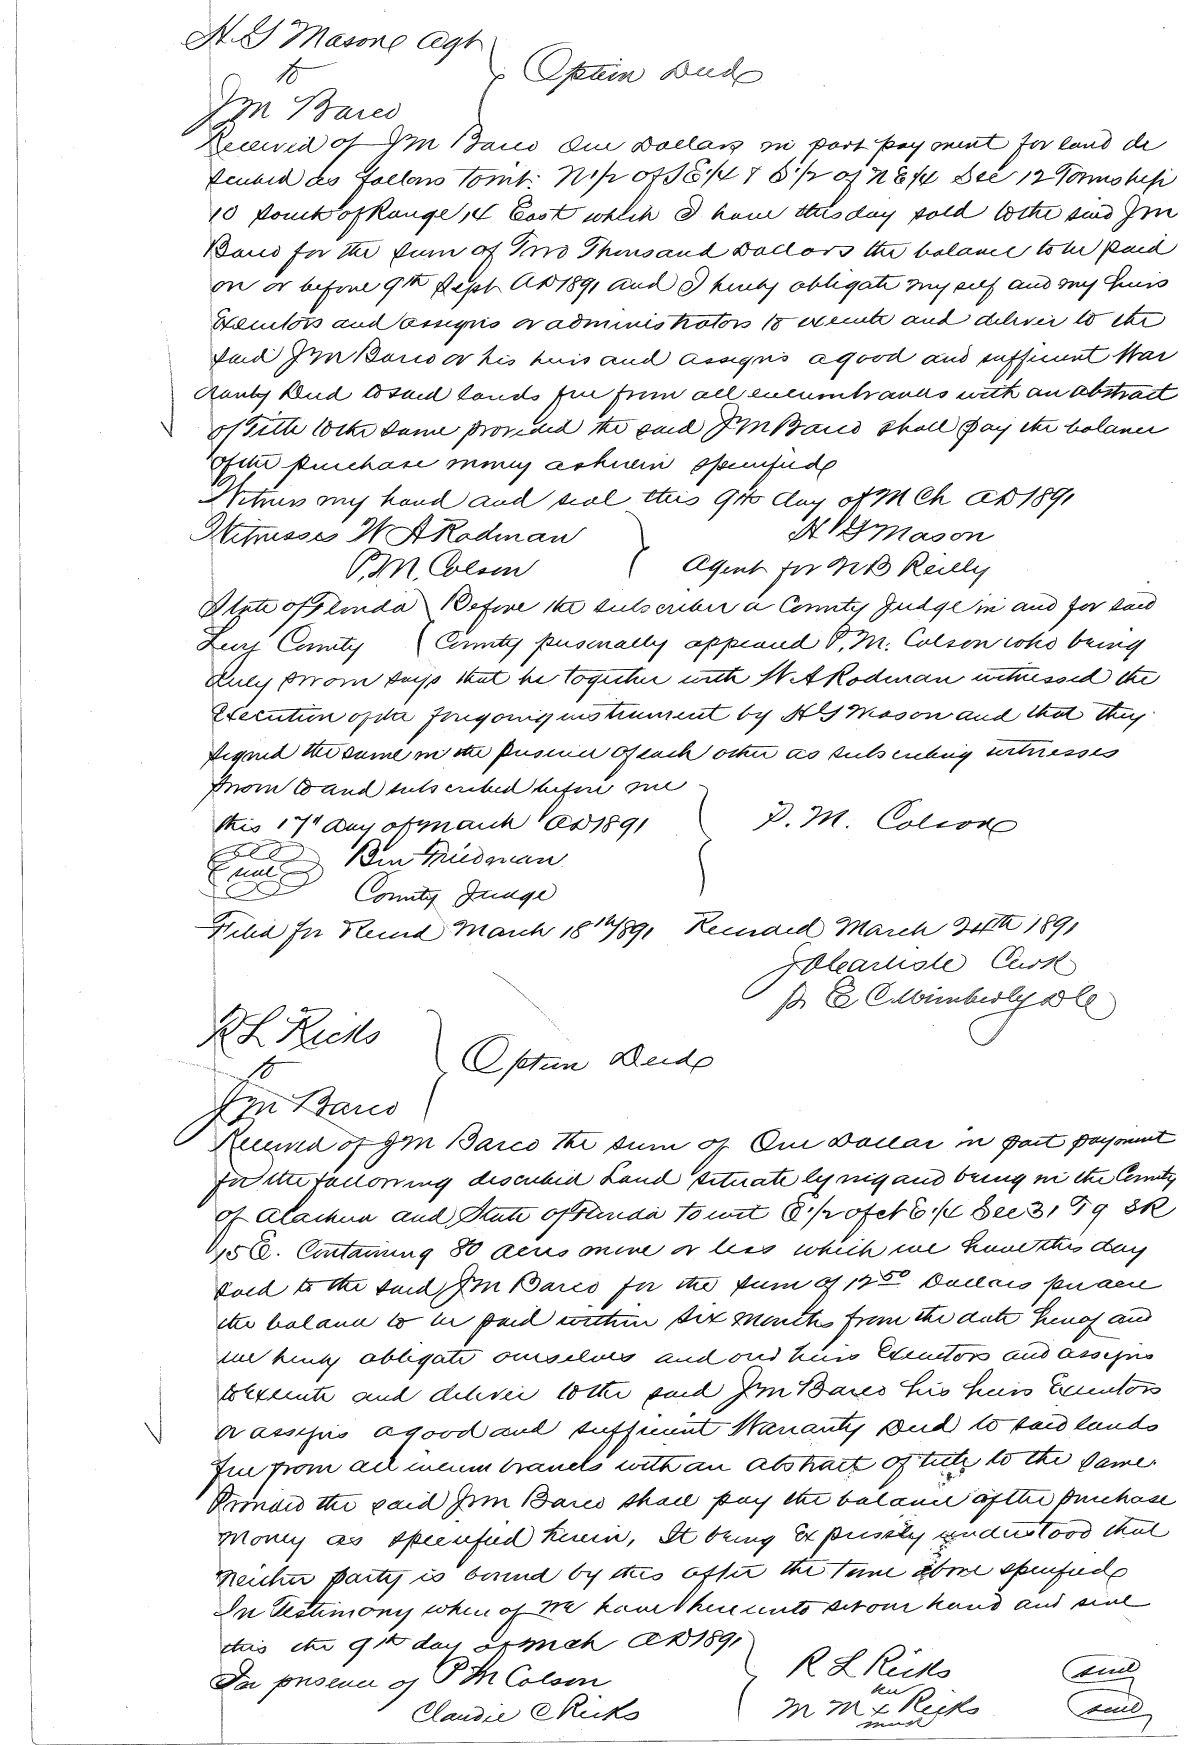 H. G Mason Agt
to
Option Deed
J M Barco
Received of J M Barco One Dollars in part pay ment for land de
scribed as follows towit: N 1/2 of S E 1/4 & S 1/2 of N E 1/4 Sec 12 Township
10 South of Range 14 East which I have this day sold to the said J M
Barco for the sum of Two Thousand Dollars the balance to be paid
on or before 9th Sept AD 1891 and I hereby obligate my self and my heirs
Executors and assigns or administrators to execute and deliver to the
said J M Barco or his heirs and assigns a good and sufficient War
ranty Deed to said lands free from all encumbrances with an abstract
of Title to the same provided the said J M Barco shall pay the balance
of the purchase money as herein specified
Witness my hand and seal this 9th day of Mch AD 1891
Witnesses W A Rodman H G Mason
P. M. Colson Agent for N B Reilly
State of Florida Before the subscriber a County Judge in and for said
Levy County County personally appeared P. M. Colson who being
duly sworn says that he together with W A Rodman witnessed the
Execution of the foregoing instrument by H G Mason and that they
signed the same in the presence of each other as subscribing witnesses
Sworn to and subscribed before me
this 17th Day of March AD 1891 P. M. Colson
Seal Ben Friedman
County Judge
Filed for Record March 18th/891 Recorded March 24th 1891
J O Carlisle Clerk
pr E C Wimberly D C
R L Ricks
to
Option Deed
J M Barco
Received of J M Barco the sum of One Dollar in part payment
for the following described Land situate lying and being in the County
of Alachua and State of Florida to wit E 1/2 of N E 1/4 Sec 31 T 9 S R
15 E. Containing 80 acres more or less which we have this day
sold to the said J M Barco for the sum of 12 50 Dollars per acre
the balance to be paid within six months from the date hereof and
we hereby obligate ourselves and our heirs Executors and assigns
to Execute and deliver to the said J M Barco his heirs Executors
or assigns a good and sufficient Warranty Deed to said lands
free from all incumbrances with an abstract of title to the same.
Provided the said J M Barco shall pay the balance of the purchase
Money as specified herein, It being Expressly understood that
neither party is bound by this after the time above specified
In Testimony where of We have hereunto set our hand and seal
this the 9th day of Mch AD 1891
In presence of P M Colson R L Ricks seal
Claudie C Ricks M M her x mark Ricks seal